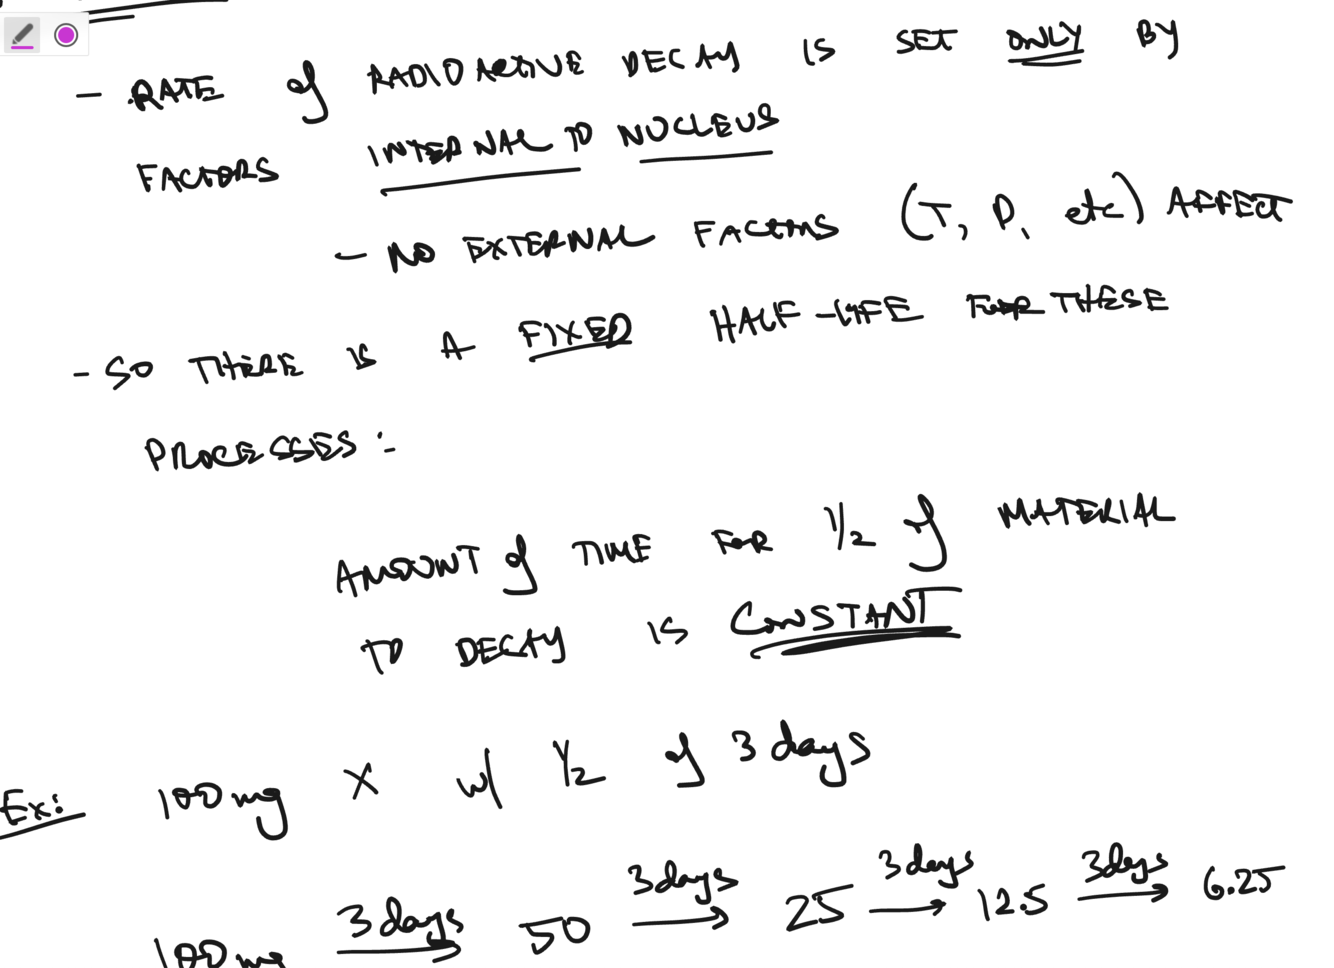 - RATE of RADIOACTIVE DECAY IS SET ONLY BY
FACTORS INTERNAL TO NUCLEUS
- NO EXTERNAL FACTORS (T, P, etc) AFFECT
- SO THERE IS A FIXED HALF-LIFE FOR THESE
PROCESSES:
AMOUNT of TIME FOR 1/2 of MATERIAL
TO DECAY IS CONSTANT
Ex: 100mg X w/ 1/2 of 3 days
100mg 3 days → 50 3 days → 25 3 days → 12.5 3 days → 6.25